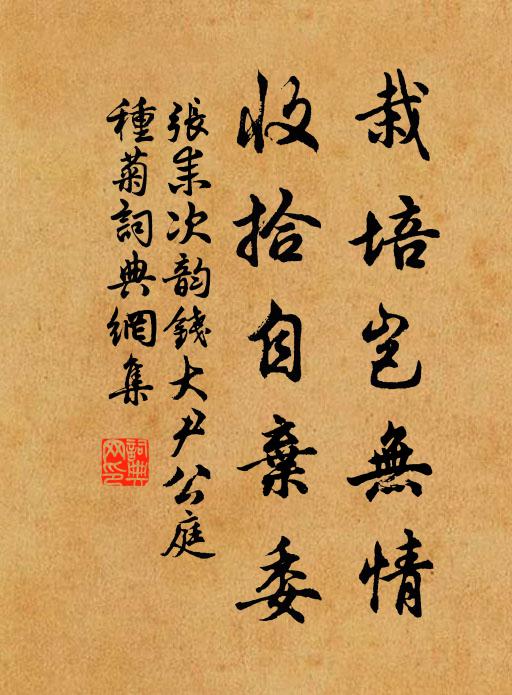 栽培豈無情
收拾自棄委
張耒次韵錢大尹公庭
種菊詞典網集
詞典网印